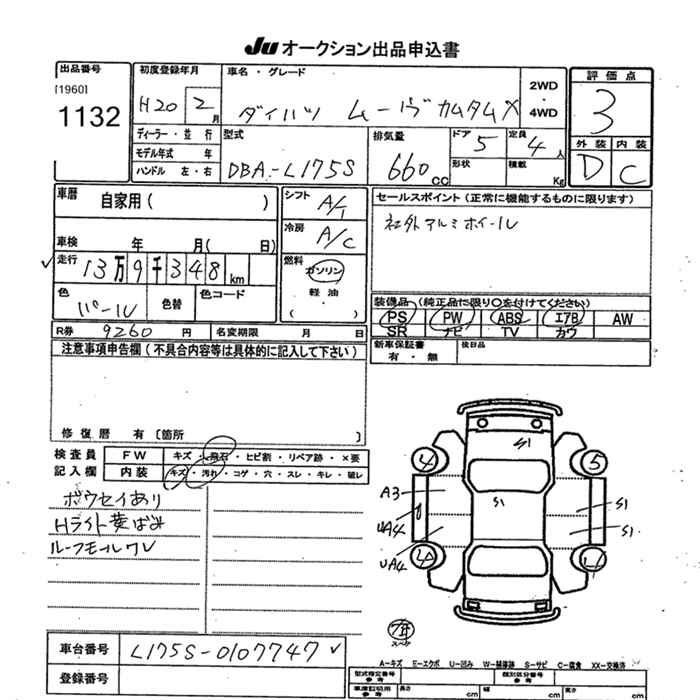 Ju オークション出品申込書
出品番号
[1960]
1132
初度登録年月
H20 2 月
車名・グレード
ダイハツ ムーヴカスタムX
2WD
・
4WD
評価点
3
外装 内装
D C
ディーラー・並行
モデル年式 年
ハンドル 左・右
型式
DBA-L175S
排気量
660 cc
ドア 5
形状
定員 4 人
積載 Kg
車暦
自家用( )
車検 年 月( 日)
走行
13万9千348km
色
パール
色替
色コード
シフト
A/T
冷房
A/C
燃料
ガソリン
・
軽油
( ・ )
セールスポイント(正常に機能するものに限ります)
社外アルミホイール
装備品(純正品に限り○を付けてください)
PS PW ABS エアB AW
SR ナビ TV カワ
R券 9260 円
名変期限 月 日
新車保証書
有・無
後日品
注意事項申告欄(不具合内容等は具体的に記入して下さい)
修復暦 有〔箇所 〕
検査員
記入欄
FW キズ・飛石・ヒビ割・リペア跡・×要
内装 キズ・汚れ・コゲ・穴・スレ・キレ・破レ
ボウセイあり
Hライト黄ばみ
ルーフモールワレ
S1
4 5
A3
S1
S1
UA4
S1
UA4
4 4
車台番号 L175S-0107747
登録番号
A-キズ E-エクボ U-凹み W-補修跡 S-サビ C-腐食 XX-交換済
型式指定番号
参考
類別区分番号
参考
車庫証明用
参考
長さ cm
幅 cm
高さ cm